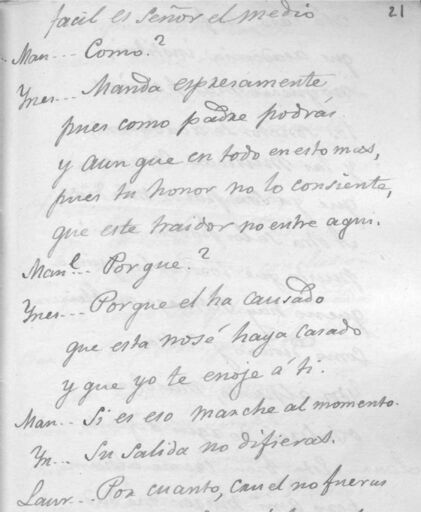 21
facil es señor el medio
Man... Como.?
Ynes... Manda espresamente
pues como padre podrás
y aun que en todo en esto mas,
pues tu honor no lo consiente,
que este traidor no entre aqui.
Manl... Por que.?
Ynes... Porque el ha causado
que esta no sé haya casado
y que yo te enoje á ti.
Man... Si es eso marche al momento.
Yn... Su salida no difieras.
Laur... Por cuanto, cruel no fueras